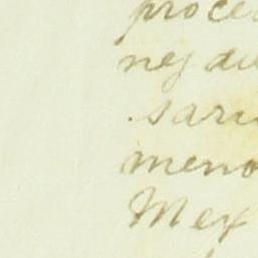 proce
nes du
saric
meno
Mex